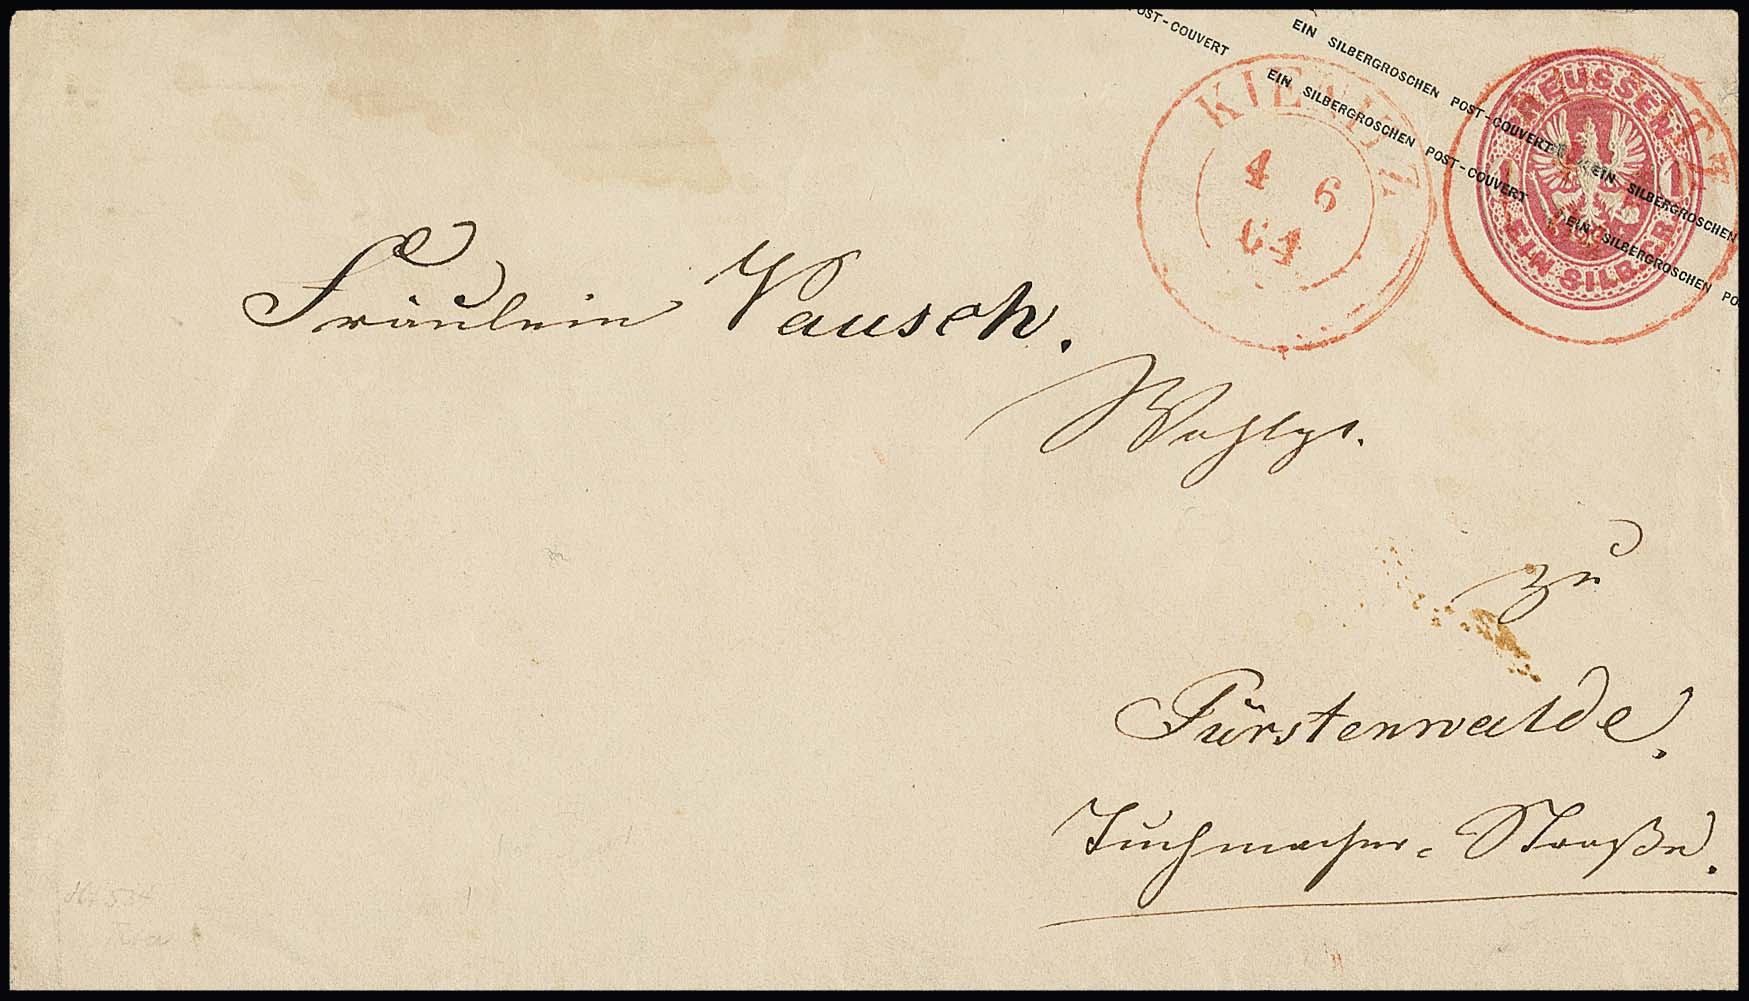 POST-COUVERT
EIN SILBERGROSCHEN POST-COUVERT EIN SILBERGROSCHEN
EIN SILBERGROSCHEN POST-COUVERT EIN SILBERGROSCHEN PO
KIENITZ
4 6
64
PREUSSEN
1 1
EIN SILB.GR.
Fräulein Vausch.
Wohlgb.
zu
Fürstenwalde.
Tuchmacher-Straße.